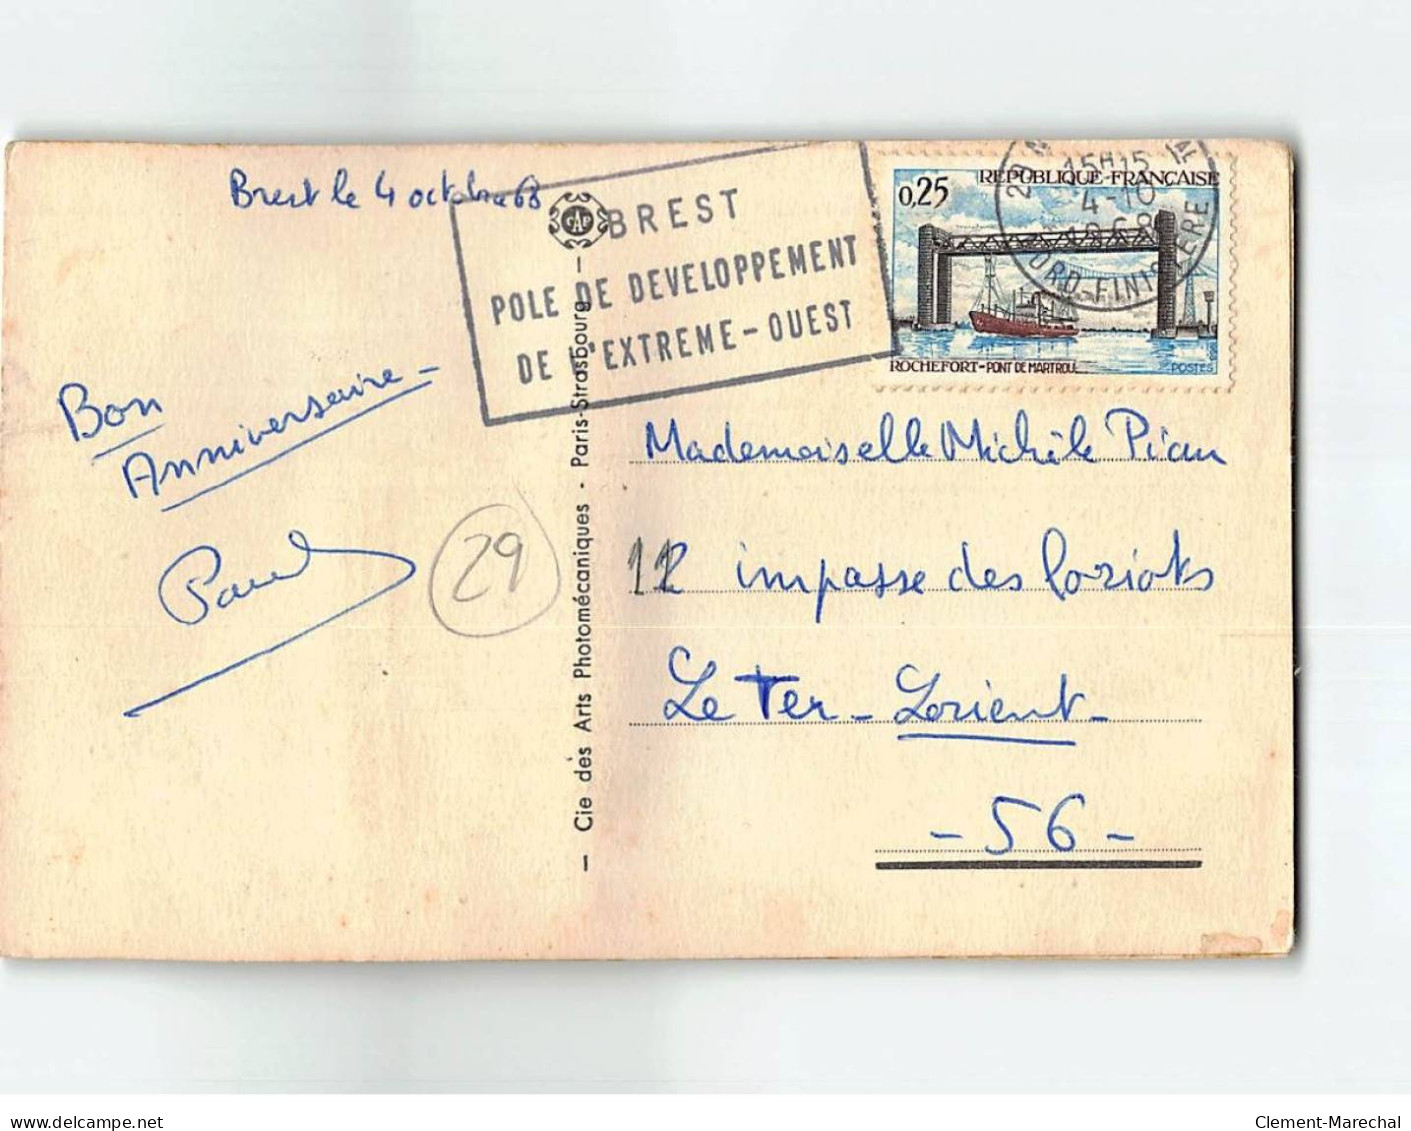 Brest le 4 octobre 68
CAP
BREST
POLE DE DEVELOPPEMENT
DE L'EXTREME-OUEST
15H15
4-10
1968
NORD-FINISTERE
RÉPUBLIQUE-FRANÇAISE
0,25
ROCHEFORT-PONT DE MARTROU
POSTES
Bon
Anniversaire -
Paul
29
— Cie des Arts Photomécaniques - Paris-Strasbourg —
Mademoiselle Michèle Pian
12 impasse des loriots
Le Ter - Lorient -
- 56 -
Clement-Marechal